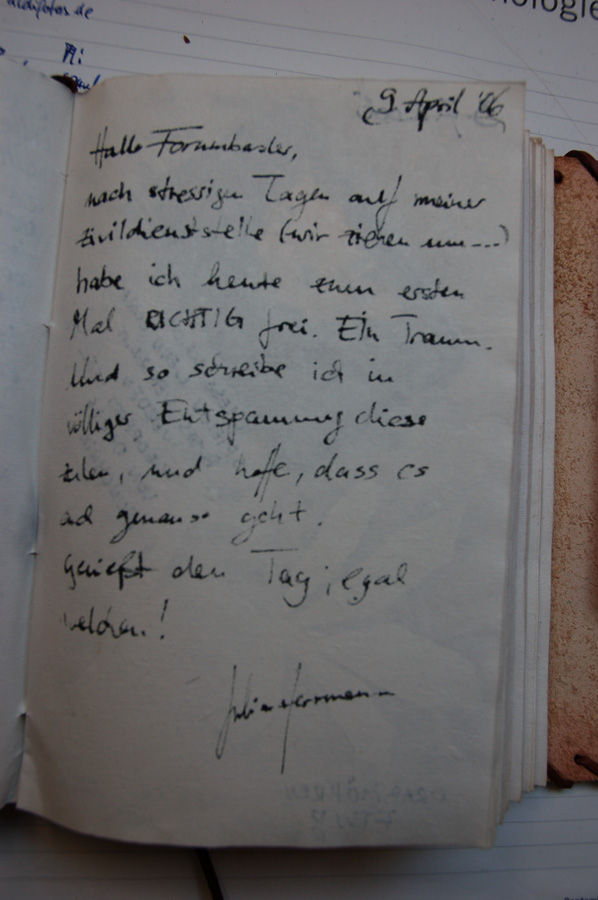 didifotos.de
nologie
9. April '06
Hallo Forumbasler,
nach stressigen Tagen auf meiner
Zivildienststelle (wir ziehen um...)
habe ich heute zum ersten
Mal RICHTIG frei. Ein Traum.
Und so schreibe ich in
völliger Entspannung diese
Zeilen, und hoffe, dass es
genauso geht.
Genießt den Tag, egal
welchen!